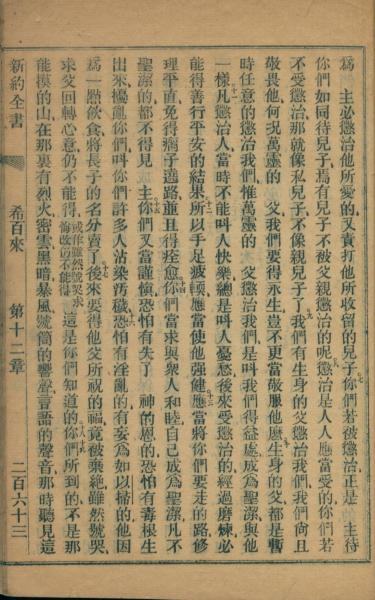 爲　主必懲治他所愛的、又責打他所收留的兒子、你們若被懲治、正是　主待
你們如同待兒子、焉有兒子不被父親懲治的呢、懲治是人人應當受的、你們若
不受懲治、那就像私兒子、不像親兒子了、我們有生身的父懲治我們、我們尙且
敬畏他、何況萬靈的　父、我們要得永生、豈不更當敬服他麼、生身的父都是暫
時任意的懲治我們、惟萬靈的　父懲治我們、是叫我們得益處、成爲聖潔、與他
一樣、凡懲治人當時不能叫人快樂、總是叫人憂愁、後來受懲治的經過磨煉、必
能得善行平安的結果、所以手足疲輭、應當使他强健、應當將你們要走的路修
理平直、免得瘸子遶路、並且得痊愈、你們當求與衆人和睦、自己成爲聖潔、凡不
聖潔的都不得見　主、你們又當謹愼、恐怕有失了　神的恩的、恐怕有毒根生
出來、擾亂你們、叫你們許多人沾染污穢、恐怕有淫亂的、有妄爲如以掃的、他因
爲一點飮食、將長子的名分賣了、後來要得他父所祝的福、竟被棄絕、雖然號哭
求父回轉心意、仍不能得、或作雖然號哭求悔改仍不能得　這是你們知道的、你們所到的、不是那
能摸的山、在那裏有烈火、密雲、黑暗、暴風、號筒的響聲、言語的聲音、那時聽見這
新約全書　希百來　第十二章　二百六十三